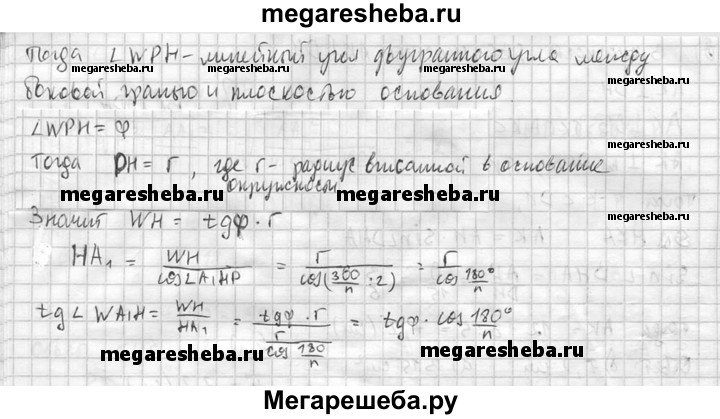 megaresheba.ru
Тогда ∠WPH - линейный угол двугранного угла между
megaresheba.ru megaresheba.ru megaresheba.ru
боковой гранью и плоскостью основания
∠WPH = φ
Тогда PH = r, где r - радиус вписанной в основание
окружности
megaresheba.ru megaresheba.ru
Значит WH = tgφ · r
megaresheba.ru
HA₁ = WH/cos∠A₁HP = r/cos(360/n : 2) = r/cos 180°/n
tg∠WA₁H = WH/HA₁ = tgφ · r / (r/cos 180/n) = tgφ · cos 180°/n
megaresheba.ru megaresheba.ru
Мегарешеба.ру